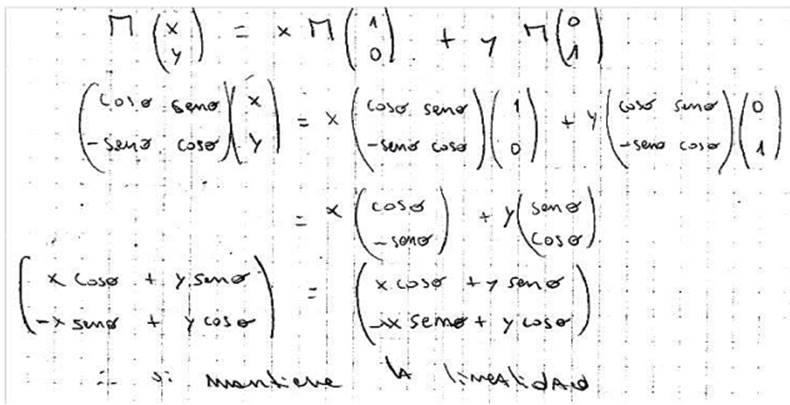 M (x y) = x M (1 0) + y M (0 1)
(cosσ senσ -senσ cosσ) (x y) = x (cosσ senσ -senσ cosσ) (1 0) + y (cosσ senσ -senσ cosσ) (0 1)
= x (cosσ -senσ) + y (senσ cosσ)
(x cosσ + y senσ -x senσ + y cosσ) = (x cosσ + y senσ -x senσ + y cosσ)
∴ si mantiene la linealidad